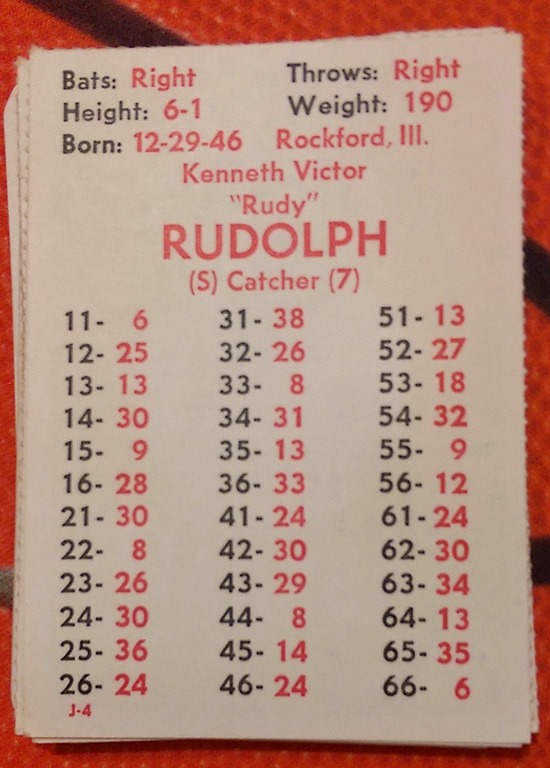 Bats: Right Throws: Right
Height: 6-1 Weight: 190
Born: 12-29-46 Rockford, Ill.
Kenneth Victor
"Rudy"
RUDOLPH
(S) Catcher (7)
11- 6 31- 38 51- 13
12- 25 32- 26 52- 27
13- 13 33- 8 53- 18
14- 30 34- 31 54- 32
15- 9 35- 13 55- 9
16- 28 36- 33 56- 12
21- 30 41- 24 61- 24
22- 8 42- 30 62- 30
23- 26 43- 29 63- 34
24- 30 44- 8 64- 13
25- 36 45- 14 65- 35
26- 24 46- 24 66- 6
J-4